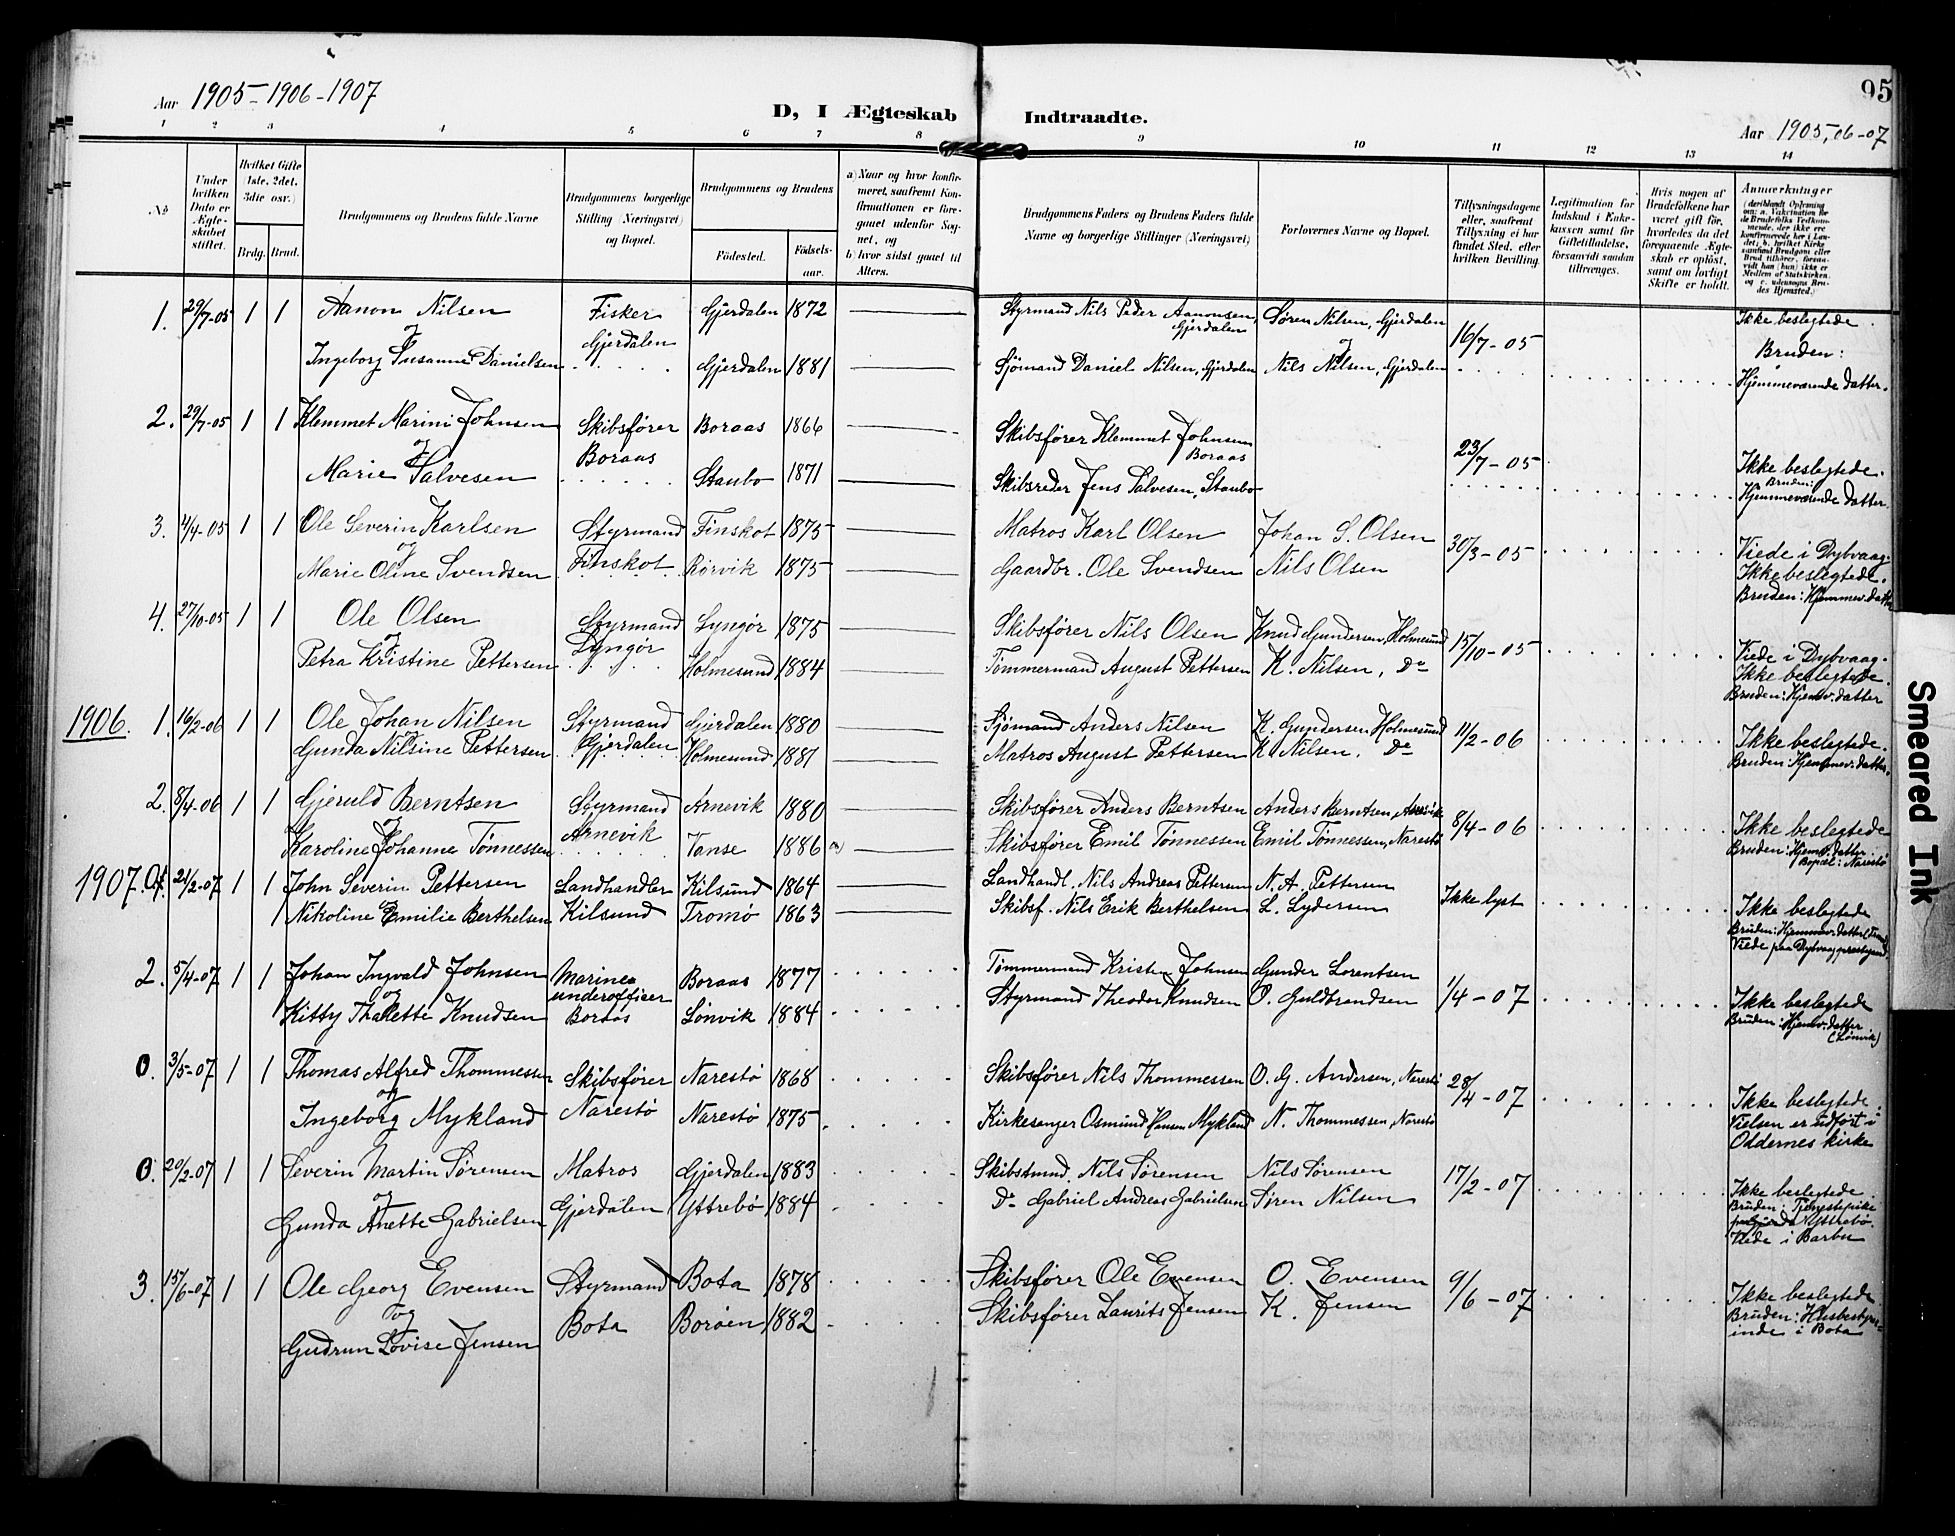 Aar 1905-1906-1907
D, I Ægteskab Indtraadte.
95
Aar 1905,06-07
1 2 3 4 5 6 7 8 9 10 11 12 13 14
No
Under hvilken Dato er Ægteskabet stiftet.
Hvilket Gifte (1ste, 2det, 3die osv.)
Brdg. Brud.
Brudgommens og Brudens fulde Navne
Brudgommens borgerlige Stilling (Næringsvei) og Bopæl.
Brudgommens og Brudens
Födested.
Födsels-aar.
a) Naar og hvor konfirmeret, saafremt Konfirmationen er foregaaet udenfor Sognet, og
b) hvor sidst gaaet til Alters.
Brudgommens Faders og Brudens Faders fulde Navne og borgerlige Stillinger (Næringsvei)
Forlovernes Navne og Bopæl.
Tillysningsdagene eller, saafremt Tillysning ei har fundet Sted, efter hvilken Bevilling.
Legitimation for Indskud i Enkekassen samt for Giftetilladelse, forsaavidt saadan tiltrænges.
Hvis nogen af Brudefolkene har været gift för, hvorledes da det foregaaende Ægteskab er oplöst, samt om lovligt Skifte er holdt.
Anmærkninger
1. 29/7-05 1 1 Aanon Nilsen Fisker Gjerdalen 1872 Styrmand Nils Peder Aanonsen, Gjerdalen Søren Nilsen, Gjerdalen 16/7-05 Ikke beslegtede.
og Gjerdalen og Bruden:
Ingeborg Susanne Danielsen Gjerdalen 1881 Sjömand Daniel Nilsen, Gjerdalen Nils Nilsen, Gjerdalen Hjemmeværende datter.
2. 29/7-05 1 1 Klemmet Marini Johnsen Skibsfører Boraas 1866 Skibsfører Klemmet Johnsen Boraas 23/7-05
og Boraas Ikke beslegtede.
Marie Salvesen Staubo 1871 Skibsreder Jens Salvesen, Staubo Bruden: Hjemmeværende datter.
3. 4/4-05 1 1 Ole Severin Karlsen Styrmand Finskot 1875 Matros Karl Olsen Johan S. Olsen 30/3-05 Viede i Dybvaag.
og Finskot Ikke beslegtede.
Marie Oline Svendsen Rørvik 1875 Gaardbr. Ole Svendsen Nils Olsen Bruden: Hjemmev. datter
4. 27/10-05 1 1 Ole Olsen Styrmand Lyngør 1875 Skibsfører Nils Olsen Knud Gundersen, Holmesund 15/10-05 Viede i Dybvaag.
og Lyngør Ikke beslegtede.
Petra Kristine Pettersen Holmesund 1884 Tømmermand August Pettersen K. Nilsen, Do Bruden: Hjemv. datter
1906. 1. 16/2-06 1 1 Ole Johan Nilsen Styrmand Gjerdalen 1880 Sjømand Anders Nilsen K. Gundersen Holmesund 11/2-06 Ikke beslegtede.
og
Gunda Nilsine Pettersen Gjerdalen Holmesund 1881 Matros August Pettersen K. Nilsen. Do Bruden: Hjemmev. datter.
2. 8/4-06 1 1 Gjeruld Berntsen Styrmand Arnevik 1880 Skibsfører Anders Berntsen Anders Berntsen, Arnevik 8/4-06 Ikke beslegtede
og Arnevik Bruden: Hjemv. datter.
Karoline Johanne Tønnessen Vanse 1886 a) Skibsfører Emil Tønnessen Emil Tønnessen, Narestø Bopæl: Narestø
1907. 21/2-07 1 1 John Severin Pettersen Landhandler Kilsund 1864 Landhandl. Nils Andreas Pettersen N. A. Pettersen Ikke lyst Ikke beslegtede
1 Nikoline Emilie Berthelsen Kilsund Tromø 1863 Skibsf. Nils Erik Berthelsen L. Lydersen Bruden: Hjemmev. datter
Viede paa Dybvaag prestegaard
2. 5/4-07 1 1 Johan Ingvald Johnsen Marineunderofficer Boraas 1877 Tømmermand Kristen Johnsen Gunder Lorentsen 1/4-07 Ikke beslegtede
og Bruden: Hjemv. datter
Kitty Thalette Knudsen Boraas Lønvik 1884 Styrmand Theodor Knudsen O. Guldbrandsen (Lønvik)
0. 3/5-07 1 1 Thomas Alfred Thommessen Skibsfører Narestø 1868 Skibsfører Nils Thommessen O. G. Andersen, Narestø 28/4-07 Ikke beslegtede.
og Narestø Vielsen er udført i
Ingeborg Mykland Narestø 1875 Kirkesanger Osmund Hansen Mykland N. Thommessen, Narestø Oddernes kirke
0. 20/2-07 1 1 Severin Martin Sørensen Matros Gjerdalen 1883 Skibstmd. Nils Sørensen Nils Sørensen 17/2-07 Ikke beslegtede.
og Bruden: Tjenestepike
Gunda Anette Gabrielsen Gjerdalen Yttrebø 1884 Do Gabriel Andreas Gabrielsen Søren Nilsen Yttrebø.
Viede i Barbu
3. 15/6-07 1 1 Ole Georg Evensen Styrmand Bota 1878 Skibsfører Ole Evensen O. Evensen 9/6-07 Ikke beslegtede.
og Bruden: Husbestyrerinde i Bota
Gudrun Lovise Jensen Bota Borøen 1882 Skibsfører Laurits Jensen K. Jensen
Smeared Ink